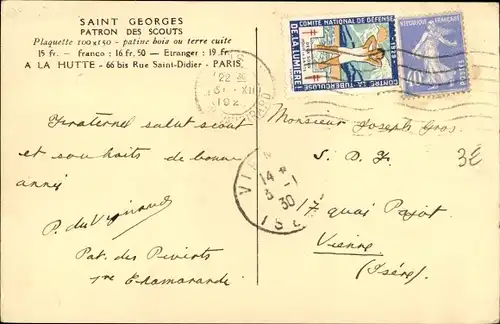 SAINT GEORGES
PATRON DES SCOUTS
Plaquette 100x150 - patine bois ou terre cuite
15 fr. — franco : 16 fr. 50 — Etranger : 19 fr.
A LA HUTTE - 66 bis Rue Saint-Didier - PARIS
COMITE NATIONAL DE DÉFENSE
CONTRE LA TUBERCULOSE
DE LA LUMIÈRE!
REPUBLIQUE FRANÇAISE
40
22 30
31 XII
VIENNE
14 *
3 -1
30
ISÈ
Fraternel salut scout
et souhaits de bonne
année
P. du
Pat. des Piverts
1re Chamarande
Monsieur Joseph Gros
S. D. F.
17 quai Pajot
Vienne
(Isère)
3E